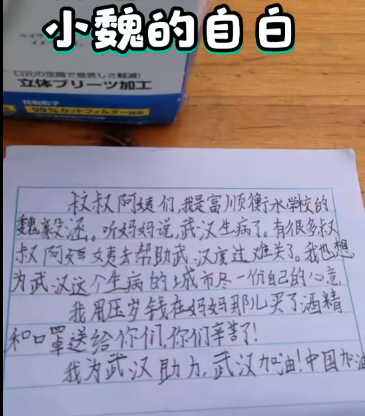 小魏的自白
口元の空間で息苦しさ軽減!
立体プリーツ加工
花粉粒子
99%カットフィルター
叔叔阿姨们,我是富顺衡水学校的
魏毅涵。听妈妈说,武汉生病了。有很多叔
叔阿姨去帮助武汉度过难关了。我也想
为武汉这个生病的城市尽一份自己的心意
我用压岁钱在妈妈那儿买了酒精
和口罩送给你们,你们辛苦了!
我为武汉助力,武汉加油!中国加油